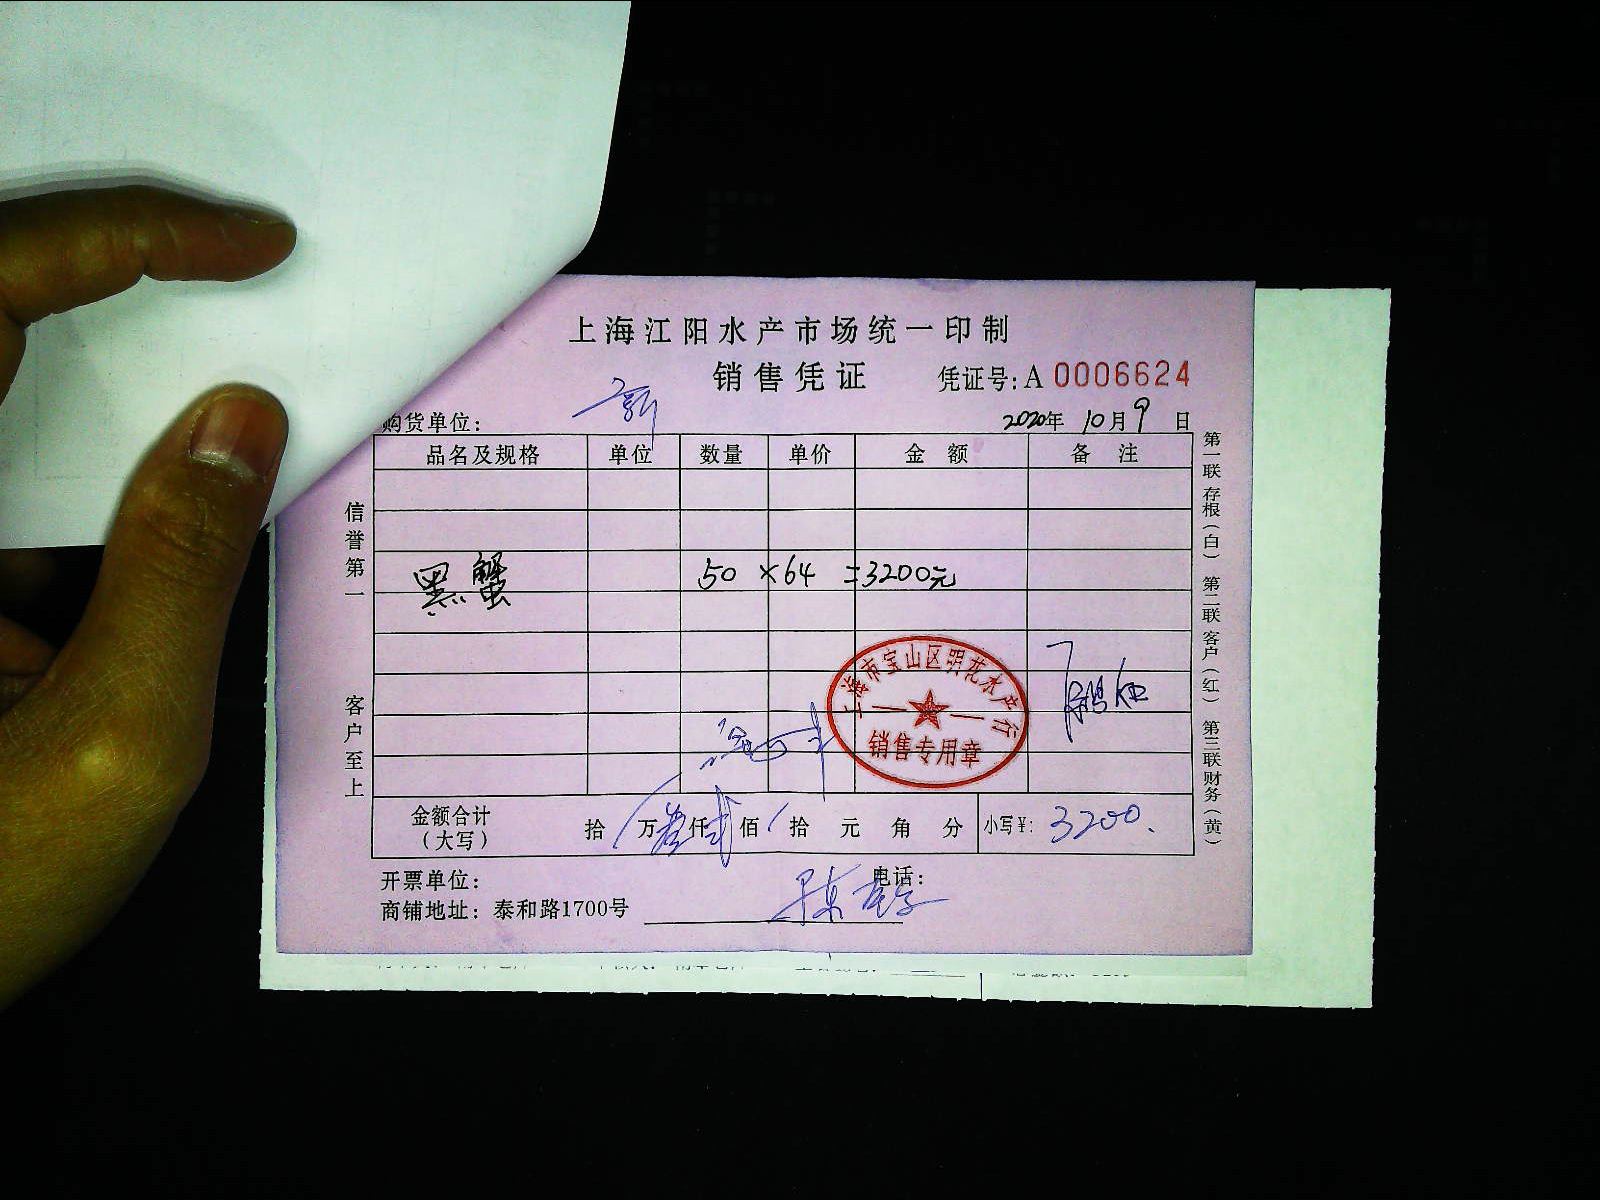 上海江阳水产市场统一印制
销售凭证
凭证号: A 0006624
购货单位:
2020年 10月9日
品名及规格 单位 数量 单价 金额 备注
黑蟹 50 ×64 =3200元
信誉第一
客户至上
第一联存根(白) 第二联客户(红) 第三联财务(黄)
上海市宝山区明花水产行
销售专用章
金额合计 拾 万 叁仟 贰佰 拾 元 角 分 小写¥: 3200.
(大写)
开票单位: 电话:
商铺地址: 泰和路1700号